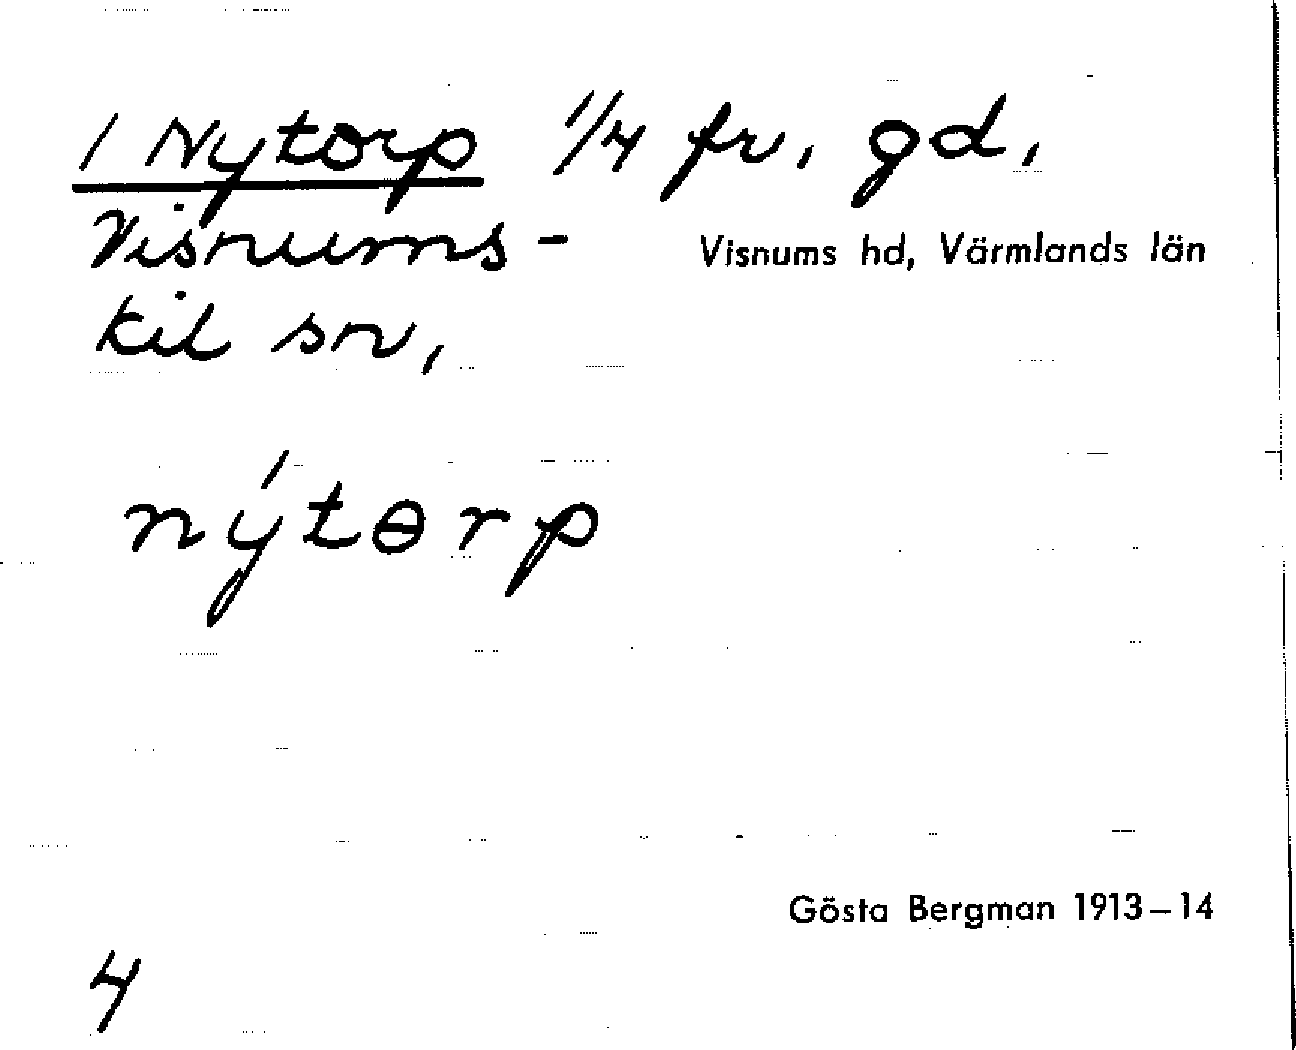 / Nytorp 1/4 fr, gd,
Visnums-
Visnums hd, Värmlands län
kil sn,
nýtɵrp
Gösta Bergman 1913–14
4